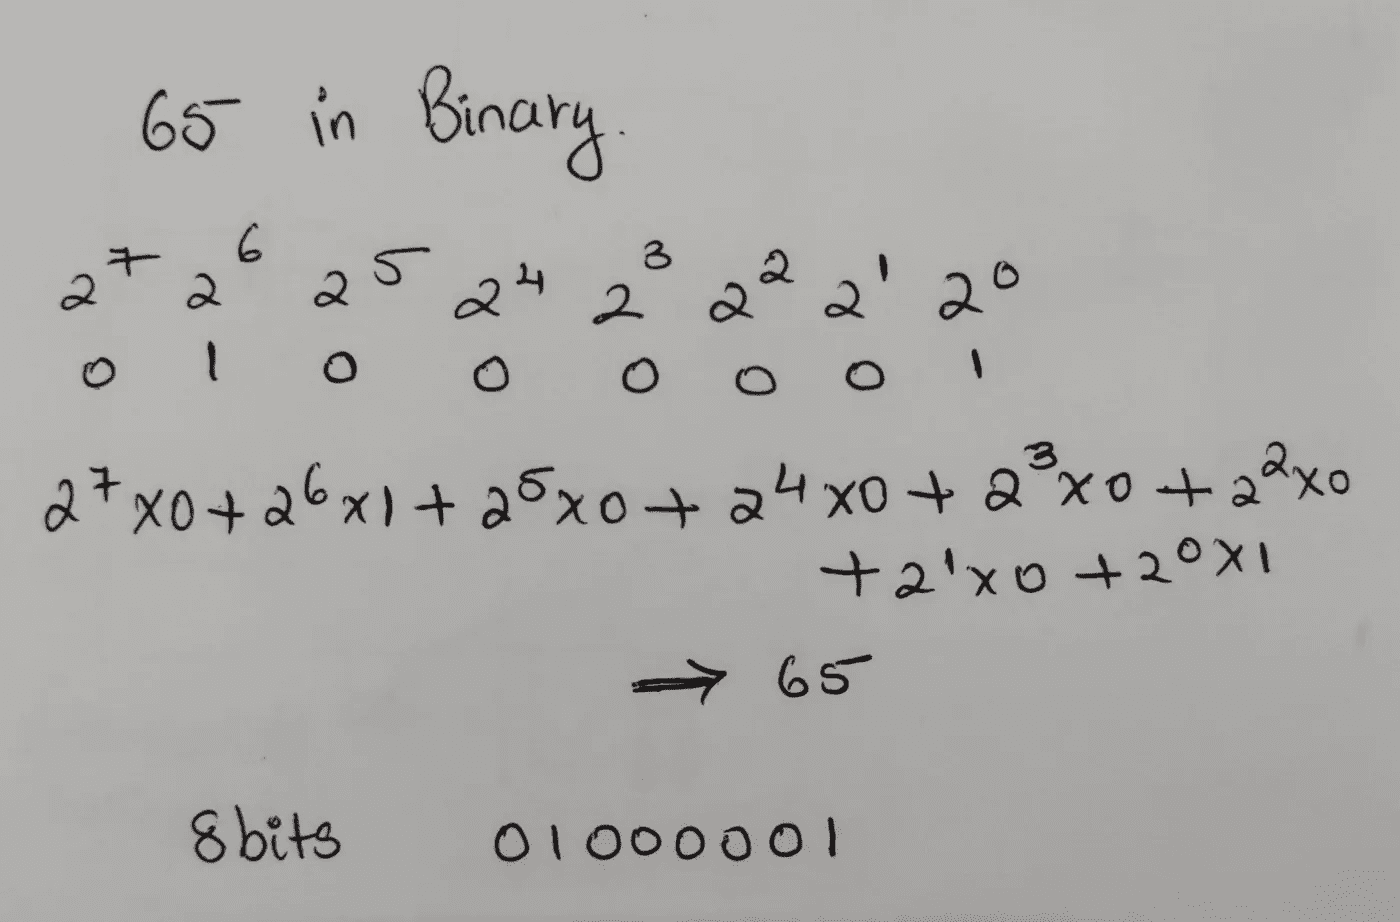 65 in Binary.
2⁷ 2⁶ 2⁵ 2⁴ 2³ 2² 2¹ 2⁰
0 1 0 0 0 0 0 1
2⁷x0+2⁶x1+2⁵x0+2⁴x0+2³x0+2²x0
+2¹x0+2⁰x1
→ 65
8bits 01000001